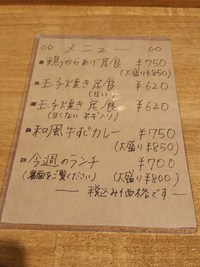 メニュー
鶏からあげ定食 ¥750
(大盛り¥850)
玉子焼き定食 ¥620
(甘い)
玉子焼き定食 ¥620
(甘くない ネギ入り)
和風牛すじカレー ¥750
(大盛り¥850)
今週のランチ ¥700
(裏面をご覧ください) (大盛り¥800)
税込み価格です